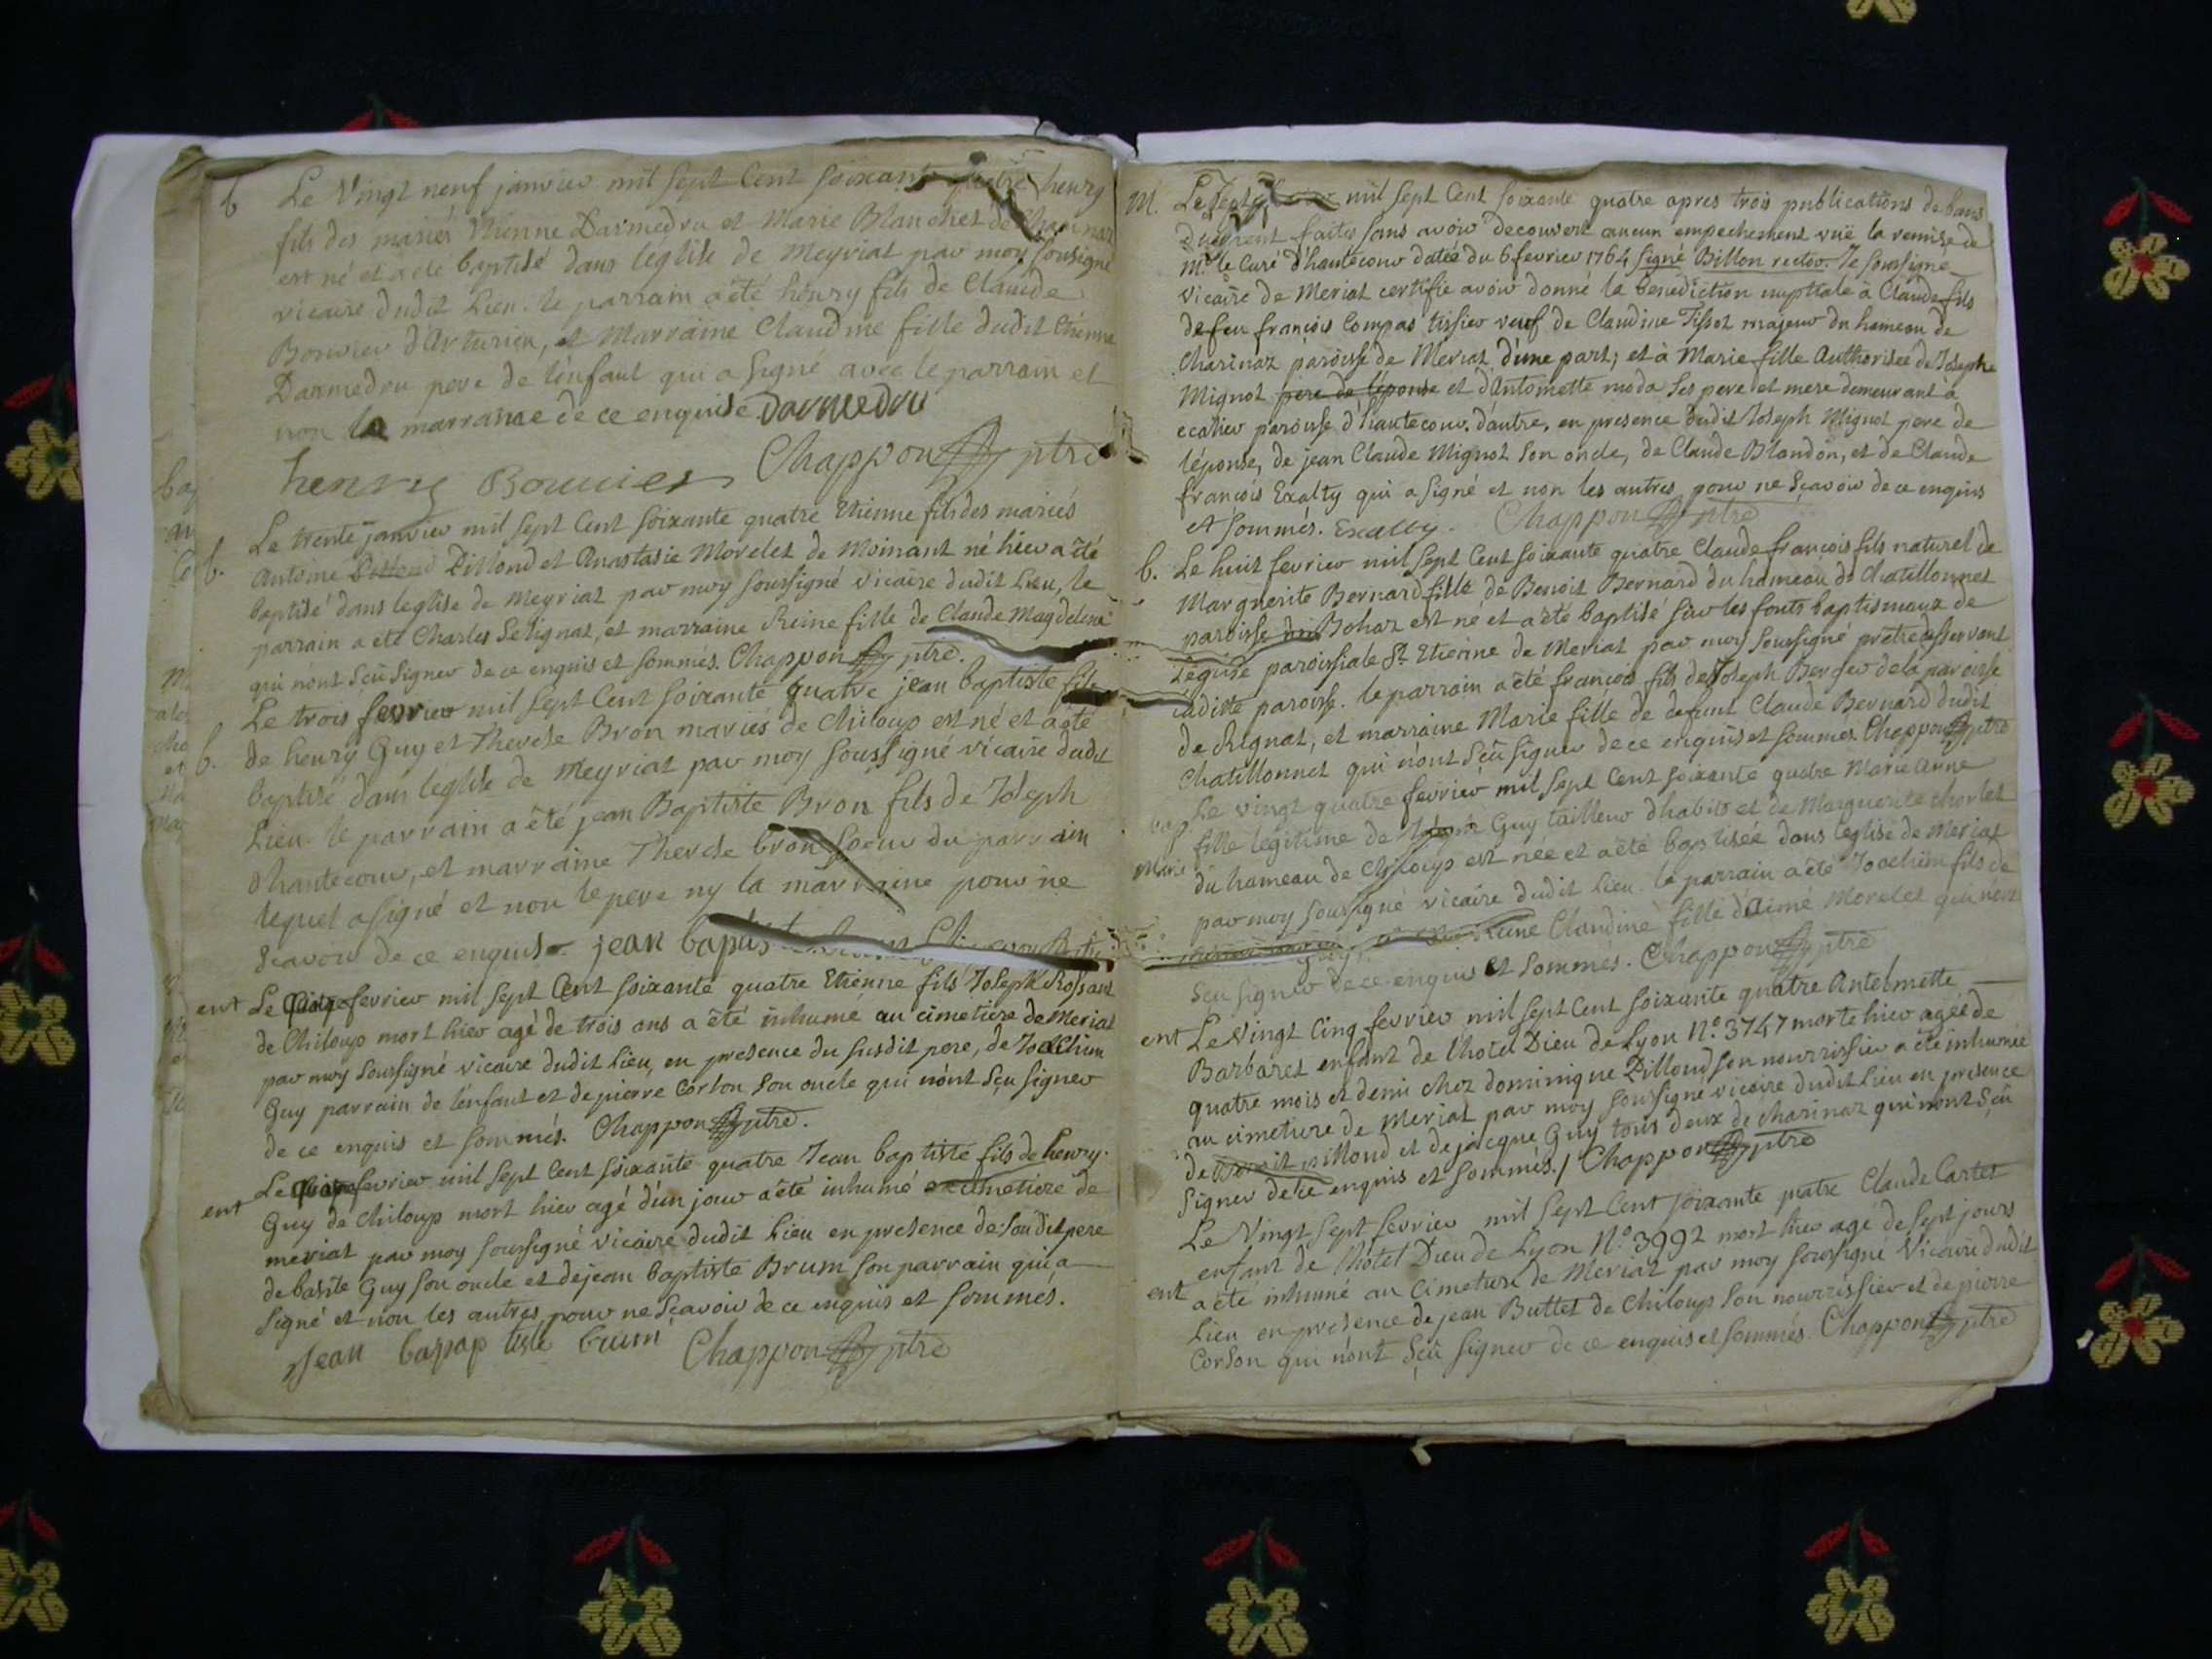 b Le Vingt neuf janvier mil sept Cent soixante quatre henry
fils des mariés Etienne Darmedru et Marie Blanchet de Charinaz
est né et a ete baptisé dans l'église de Meyriat par moy soussigné
vicaire dudit Lieu. le parrain a èté henry fils de Claude
Bouvier d'Arturieu, et Marraine Claudine fille dudit Etienne
Darmedru pere de l'enfant qui a signé avec le parrain et
non la marraine de ce enquise Darmedru
henry Bouuier Chappon ptre
Le trente janvier mil sept Cent soixante quatre Etienne fils des mariés
b. Antoine Pillond et Anastasie Morelet de Moinant né hier a èté
baptisé dans leglise de meyriat par moy soussigné vicaire dudit Lieu, le
parrain a eté Charles Setignat, et marraine Reine fille de Claude Magdeleine
qui n'ont sçû signer de ce enquis et sommés. Chappon ptre.
Le trois fevrier mil sept Cent soixante quatre jean baptiste fils
b. de henry Guy et Therese Bron mariés de Chiloup est né et a eté
baptisé dans l'église de Meyriat par moy soussigné vicaire dudit
Lieu. le parrain a èté jean Baptiste Bron fils de Joseph
d'hautecour, et marraine Therese bron soeur du parrain
lequel a signé et non le pere ny la marraine pour ne
sçavoir de ce enquis. jean bapus
ent Le fevrier mil sept Cent soixante quatre Etienne fils Joseph Rossant
de Chiloup mort hier agé de trois ans a èté inhumé au cimetiere de Meriat
par moy soussigné vicaire dudit Lieu, en presence du susdit pere, de Joachim
Guy parrain de l'enfant et de pierre Corson son oncle qui n'ont sçu signer
de ce enquis et sommés. Chappon ptre.
Le fevrier mil sept Cent soixante quatre Jean baptiste fils de henry
ent Guy de Chiloup mort hier agé d'un jour a èté inhumé cimetiere de
meriat par moy soussigné vicaire dudit Lieu en presence de sondit pere
de basile Guy son oncle et de jean baptiste Brum son parrain qui a
signé et non les autres pour ne sçavoir de ce enquis et sommés.
Jean bapap tiste brum Chappon ptre
M. Le Sept mil sept Cent soixante quatre apres trois publications de bans
duëment faites sans avoir decouvert aucun empechement vuë la remise de
Mr. le Curé d'hautecour datée du 6 fevrier 1764 signé Billon rector. Je soussigné
vicaire de Meriat certifie avoir donné la benediction nuptiale à Claude fils
de feu françois Compas tissier veuf de Claudine Tissot majeur du hameau de
Charinaz paroisse de Meriat d'une part; et à Marie fille Authorisée de Joseph
Mignot pere de l'épouse et d'Antoinette moda ses pere et mere demeurant à
ecatier paroisse d'hautecour. d'autre, en presence dudit Joseph Mignot pere de
l'épouse, de jean Claude Mignot son oncle, de Claude Blandon, et de Claude
françois Exalty qui a signé et non les autres pour ne sçavoir de ce enquis
et sommés. Exalty. Chappon ptre
b. Le huit fevrier mil sept Cent soixante quatre Claude françois fils naturel de
Marguerite Bernard fille de Benoit Bernard du hameau de Chatillonnet
paroisse de Bohaz est né et a èté baptisé sur les fonts baptismaux de
l'eglise paroissiale St. Etienne de Meriat par moy soussigné prètre desservant
ladiste paroisse. le parrain a èté françois fils de Joseph Berger de la paroisse
de Rignat, et marraine Marie fille de defunt Claude Bernard dudit
Chatillonnet qui n'ont sçû signer de ce enquis et sommés. Chappon ptre
bap Le vingt quatre fevrier mil sept Cent soixante quatre Marie Anne
fille legitime de Guy tailleur d'habits et de Marguerite chorlet
du hameau de Chiloup est née et a èté baptisée dans l'eglise de Meriat
par moy soussigné vicaire dudit Lieu. le parrain a èté Joachim fils de
Claudine fille d'Aimé Morelet qui n'ont
sçu signer de ce enquis et sommés. Chappon ptre
ent Le Vingt Cinq fevrier mil sept Cent soixante quatre Antelmette
Barbaret enfant de l'hotel Dieu de Lyon N.o 3747 morte hier agée de
quatre mois et demi chez dominique Pillond son nourrissier a èté inhumée
au cimetiere de Meriat par moy soussigné vicaire dudit Lieu en presence
de benoit pillond et de jacque Guy tous deux de charinaz qui n'ont sçû
signer de ce enquis et sommés./ Chappon ptre
Le Vingt Sept fevrier mil sept Cent soixante quatre Claude Cartet
enfant de l'hotel Dieu de Lyon N.o 3992 mort hier agé de sept jours
ent a èté inhumé au Cimetiere de Meriat par moy soussigné Vicaire dudit
Lieu en presence de jean Buttet de Chiloup son nourrissier et de pierre
Corson qui n'ont sçû signer de ce enquis et sommés. Chappon ptre